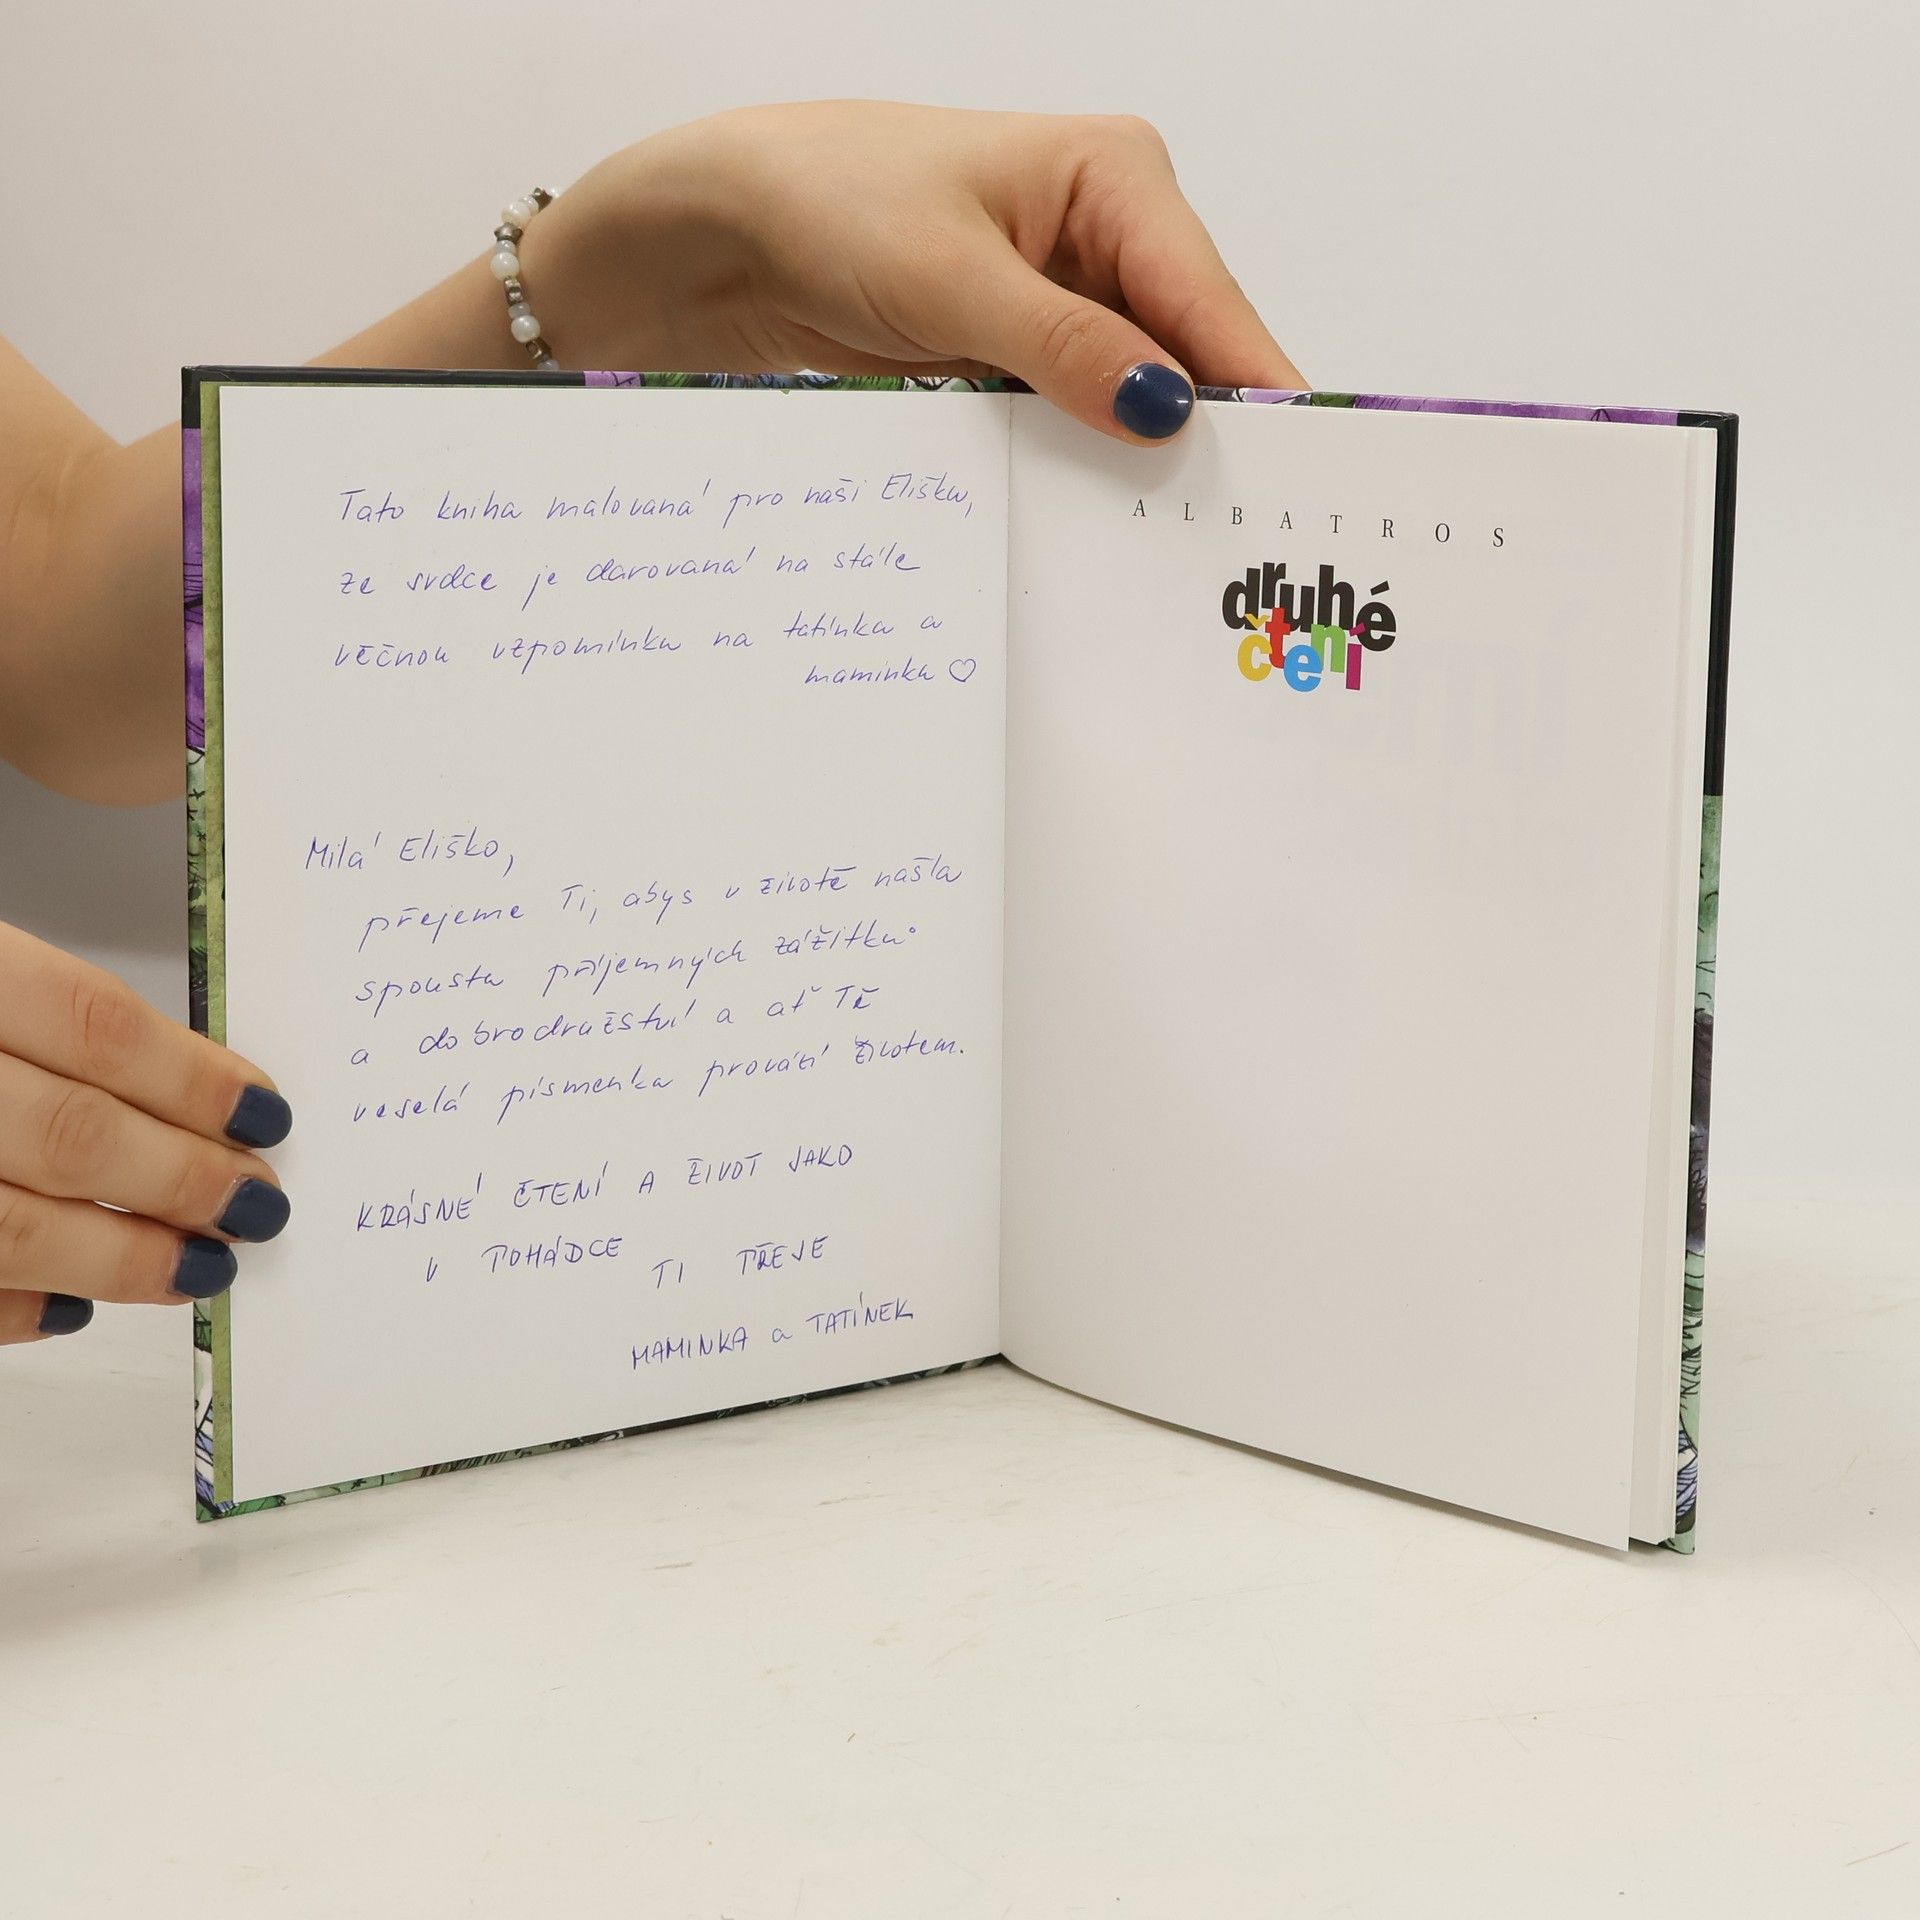 Tato kniha malovaná pro naši Elišku,
ze srdce je darovaná na stále
věčnou vzpomínku na tatínka a
maminku ♡
Milá Eliško,
přejeme Ti, abys v životě našla
spoustu příjemných zážitků
a dobrodružství a ať Tě
veselá písmenka provází životem.
KRÁSNÉ ČTENÍ A ŽIVOT JAKO
V POHÁDCE
TI PŘEJE
MAMINKA a TATÍNEK
ALBATROS
druhé
čtení